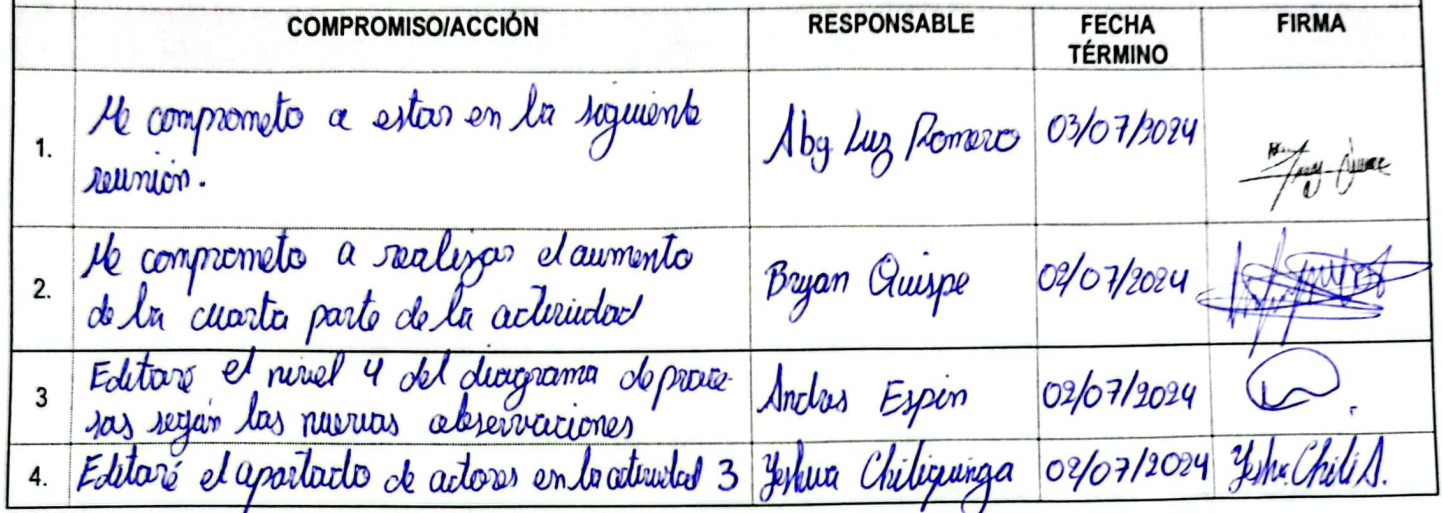 COMPROMISO/ACCIÓN RESPONSABLE FECHA TÉRMINO FIRMA
1. Me comprometo a estar en la siguiente
reunión.
Abg Luz Romero 03/07/2024
2. Me comprometo a realizar el aumento
de la cuarta parte de la actividad
Bryan Quispe 02/07/2024
3 Editaré el nivel 4 del diagrama de proce-
sos según las nuevas observaciones
Andres Espin 02/07/2024
4. Editaré el apartado de actores en la actividad 3 Yeshua Chiliquinga 02/07/2024 Yeshu.Chili A.